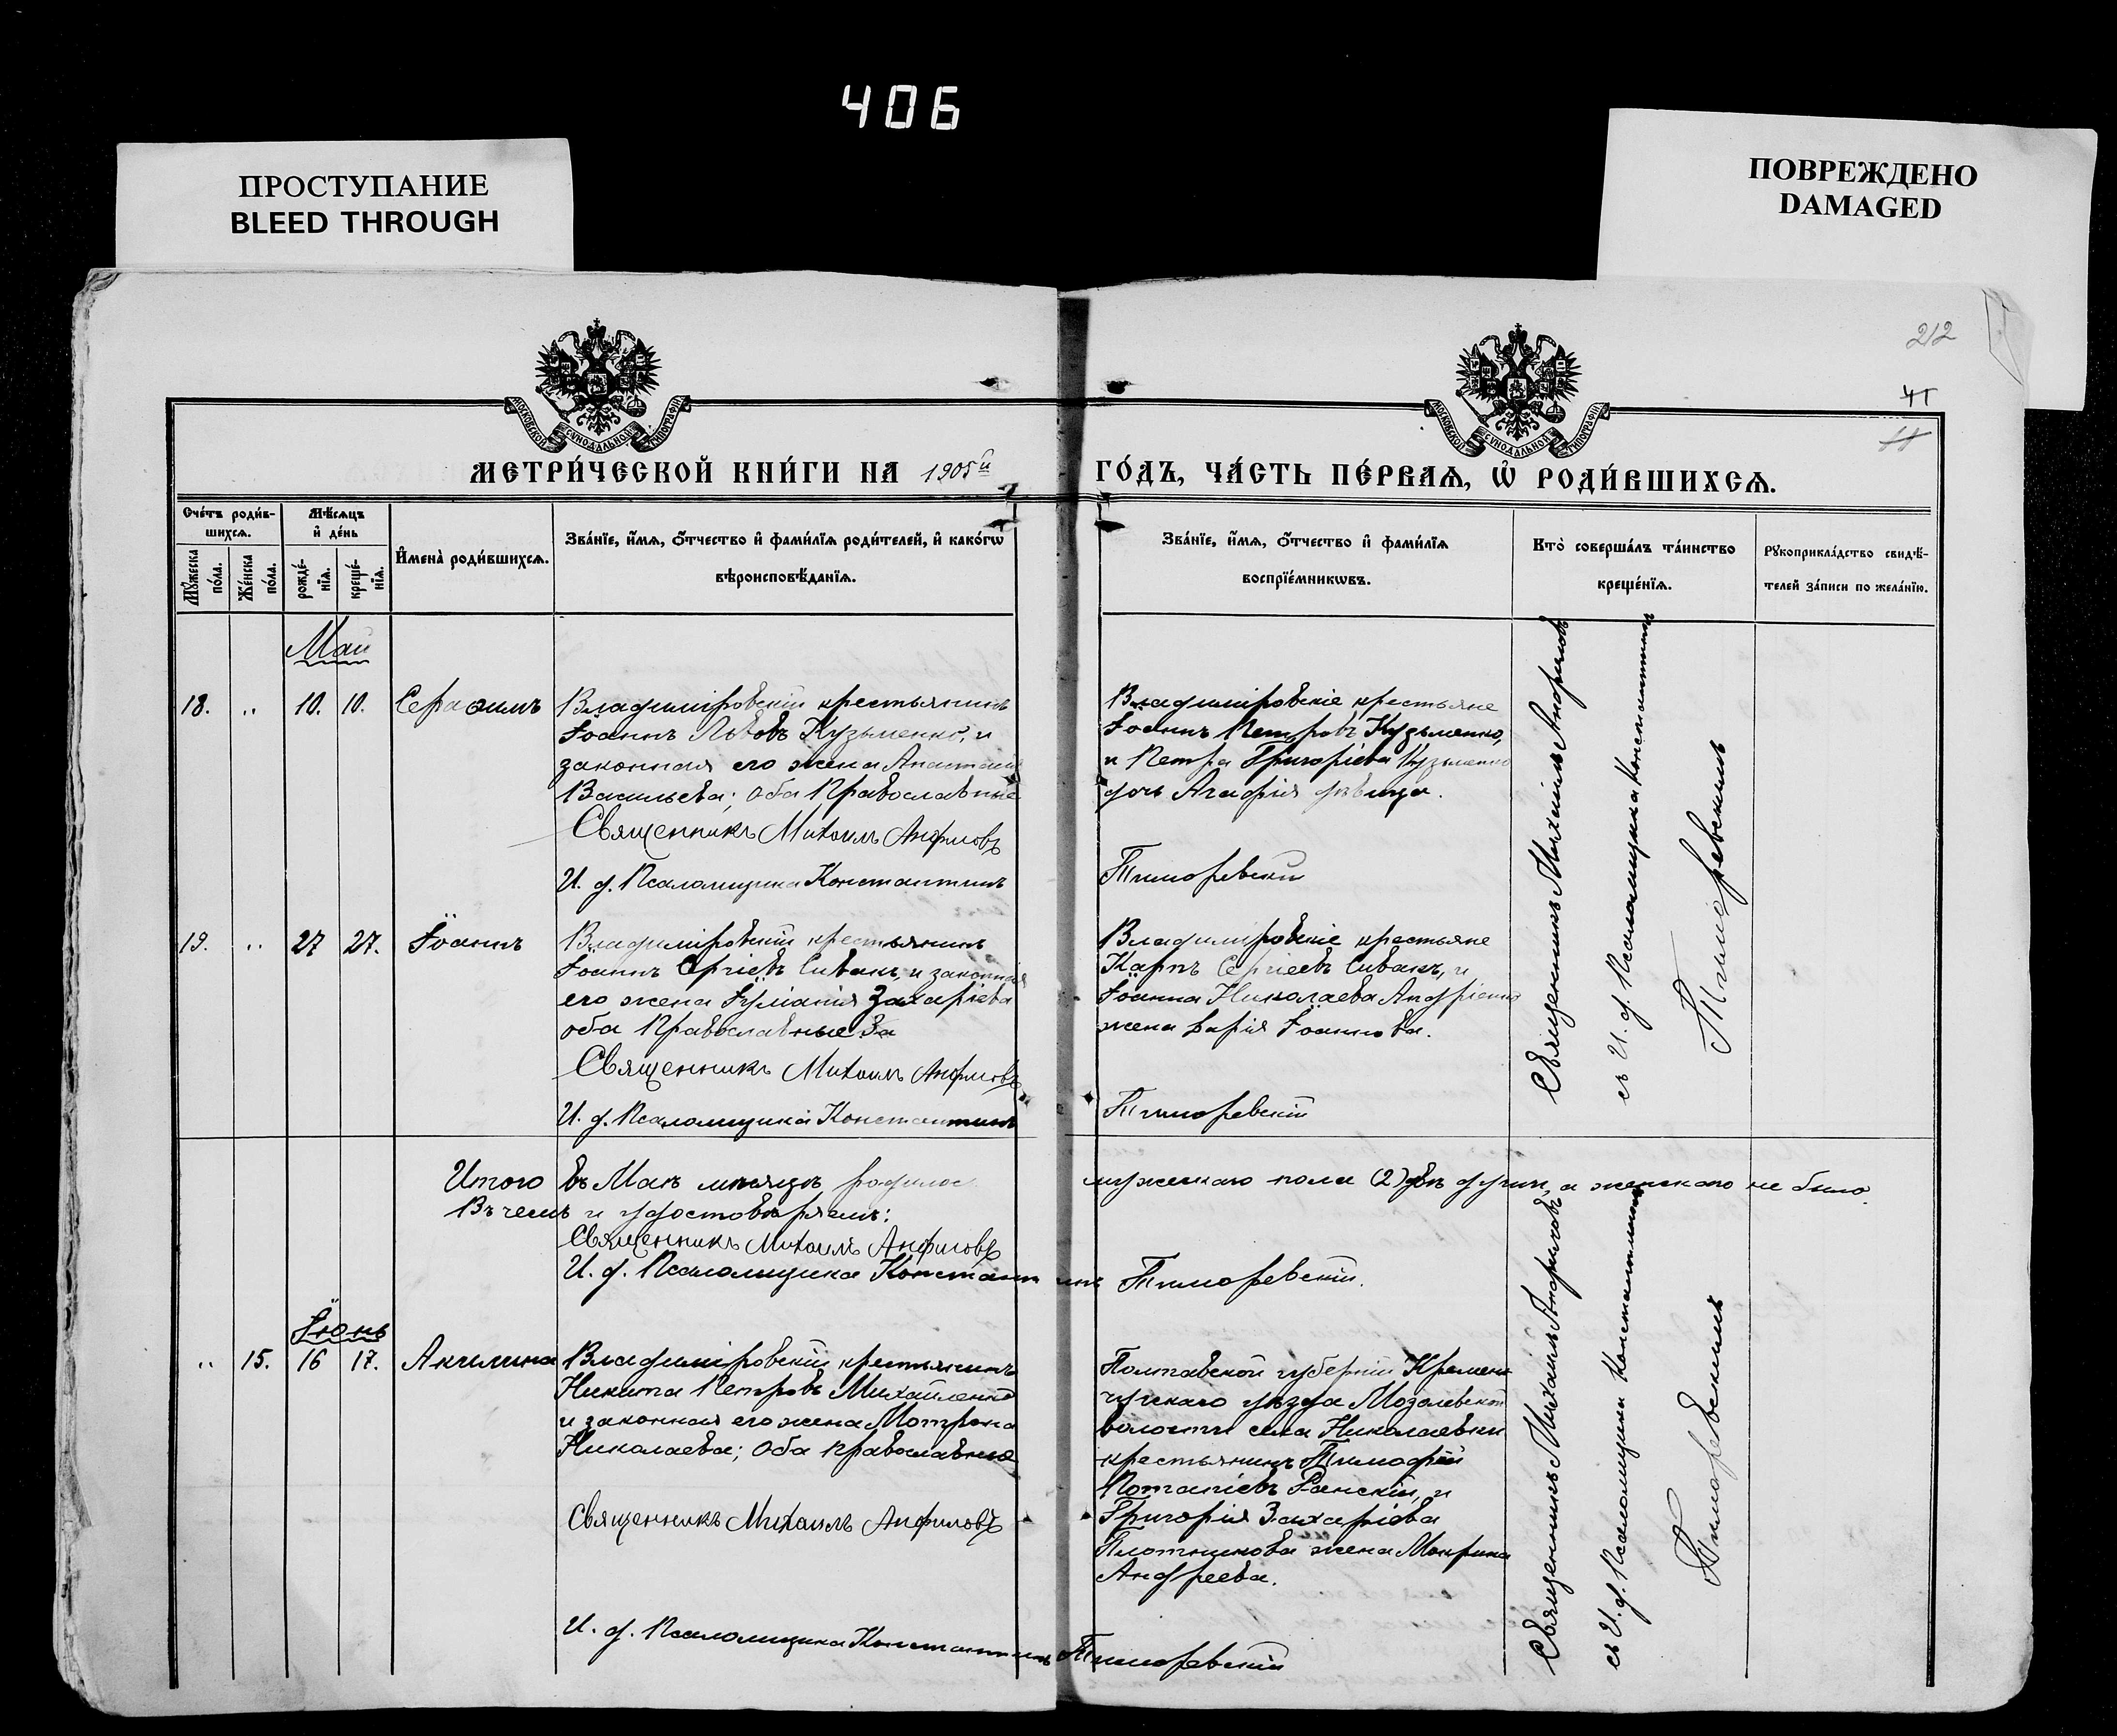 406
ПРОСТУПАНИЕ
BLEED THROUGH
ПОВРЕЖДЕНО
DAMAGED
212
41
11
МОСКОВСКОЙ СѴНОДАЛЬНОЙ ТИПОГРАФІИ
МОСКОВСКОЙ СѴНОДАЛЬНОЙ ТИПОГРАФІИ
МЕТРИ́ЧЕСКОЙ КНИ́ГИ НА 1905й ГО́ДЪ, ЧА́СТЬ ПЕ́РВАѦ, Ѽ РОДИ́ВШИХСѦ.
Сче́тъ роди́в-
шихсѧ.
Мꙋ́жеска
по́ла.
Же́нска
по́ла.
Мѣ́сѧцъ
и҆ де́нь
рожде́-
нїѧ.
креще́-
нїѧ.
И҆мена̀ роди́вшихсѧ.
Зва́нїе, и҆́мѧ, ѻ҆́тчество и҆ фами́лїѧ роди́телей, и҆ како́гѡ
вѣроисповѣ́данїѧ.
Зва́нїе, и҆́мѧ, ѻ҆́тчество и҆ фами́лїѧ
воспрїе́мникѡвъ.
Кто̀ соверша́лъ та́инство
креще́нїѧ.
Рꙋкоприкла́дство свидѣ́-
телей за́писи по жела́нїю.
Май
18. „ 10. 10. Серафимъ
Владимiровскiй крестьянинъ
Iоаннъ Львовъ Кузьменко, и
законная его жена Анастасiя
Васильева; оба Православные
Священникъ Михаилъ Анфиловъ
И. д. Псаломщика Константинъ
Владимiровскiе крестьяне
Iоаннъ Петровъ Кузьменко,
и Петра Григорiева Кузьменко
дочь Агафiя дѣвица.
Тиморевскiй
Священникъ Михаилъ Анфиловъ
съ И. д. Псаломщика Константиномъ
Тиморевскимъ
19. „ 27 27. Iоаннъ
Владимiровскiй крестьянинъ
Iоаннъ Сергiевъ Сивакъ, и законная
его жена Iулiанiя Захарiева
оба Православные За
Священникъ Михаилъ Анфиловъ
И. д. Псаломщика Константинъ
Владимiровскiе крестьяне
Карпъ Сергiевъ Сивакъ, и
Iоанна Николаева Андрiенко
жена Дарiя Iоаннова.
Тиморевскiй
Итого въ Маѣ мѣсяцѣ родилось мужескаго пола (2) двѣ души, а женскаго не было.
Въ чемъ и удостовѣряемъ:
Священникъ Михаилъ Анфиловъ
И. д. Псаломщика Константинъ Тиморевскiй.
Iюнь
„ 15. 16 17. Акилина
Владимiровскiй крестьянинъ
Никита Петровъ Михайленко
и законная его жена Мотрона
Николаева; Оба православные
Священникъ Михаилъ Анфиловъ
И. д. Псаломщика Константинъ Тиморевскiй
Полтавской губернiи Кремен-
чугскаго уѣзда Мозолевской
волости села Николаевки
крестьянинъ Тимофей
Потапiевъ Ранскiй, и
Григорiя Захарiева
Плотникова жена Макрина
Андреева.
Священникъ Михаилъ Анфиловъ
съ И. д. Псаломщика Константиномъ
Тиморевскимъ